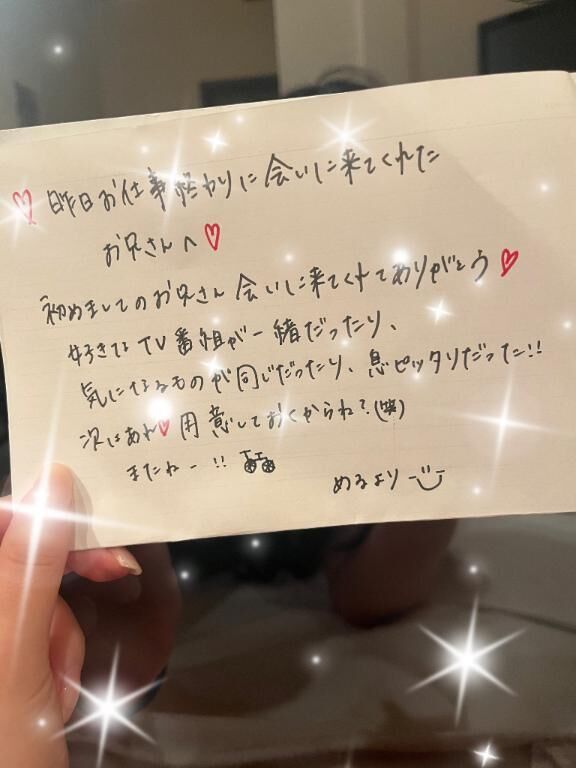 ♡昨日お仕事終わりに会いに来てくれた
お兄さんへ♡
初めましてのお兄さん会いに来てくれてありがとう♡
好きなTV番組が一緒だったり、
気になるものが同じだったり、息ピッタリだった!!
次はあれ♡用意しておくからね?(笑)
またねー!!
めるより